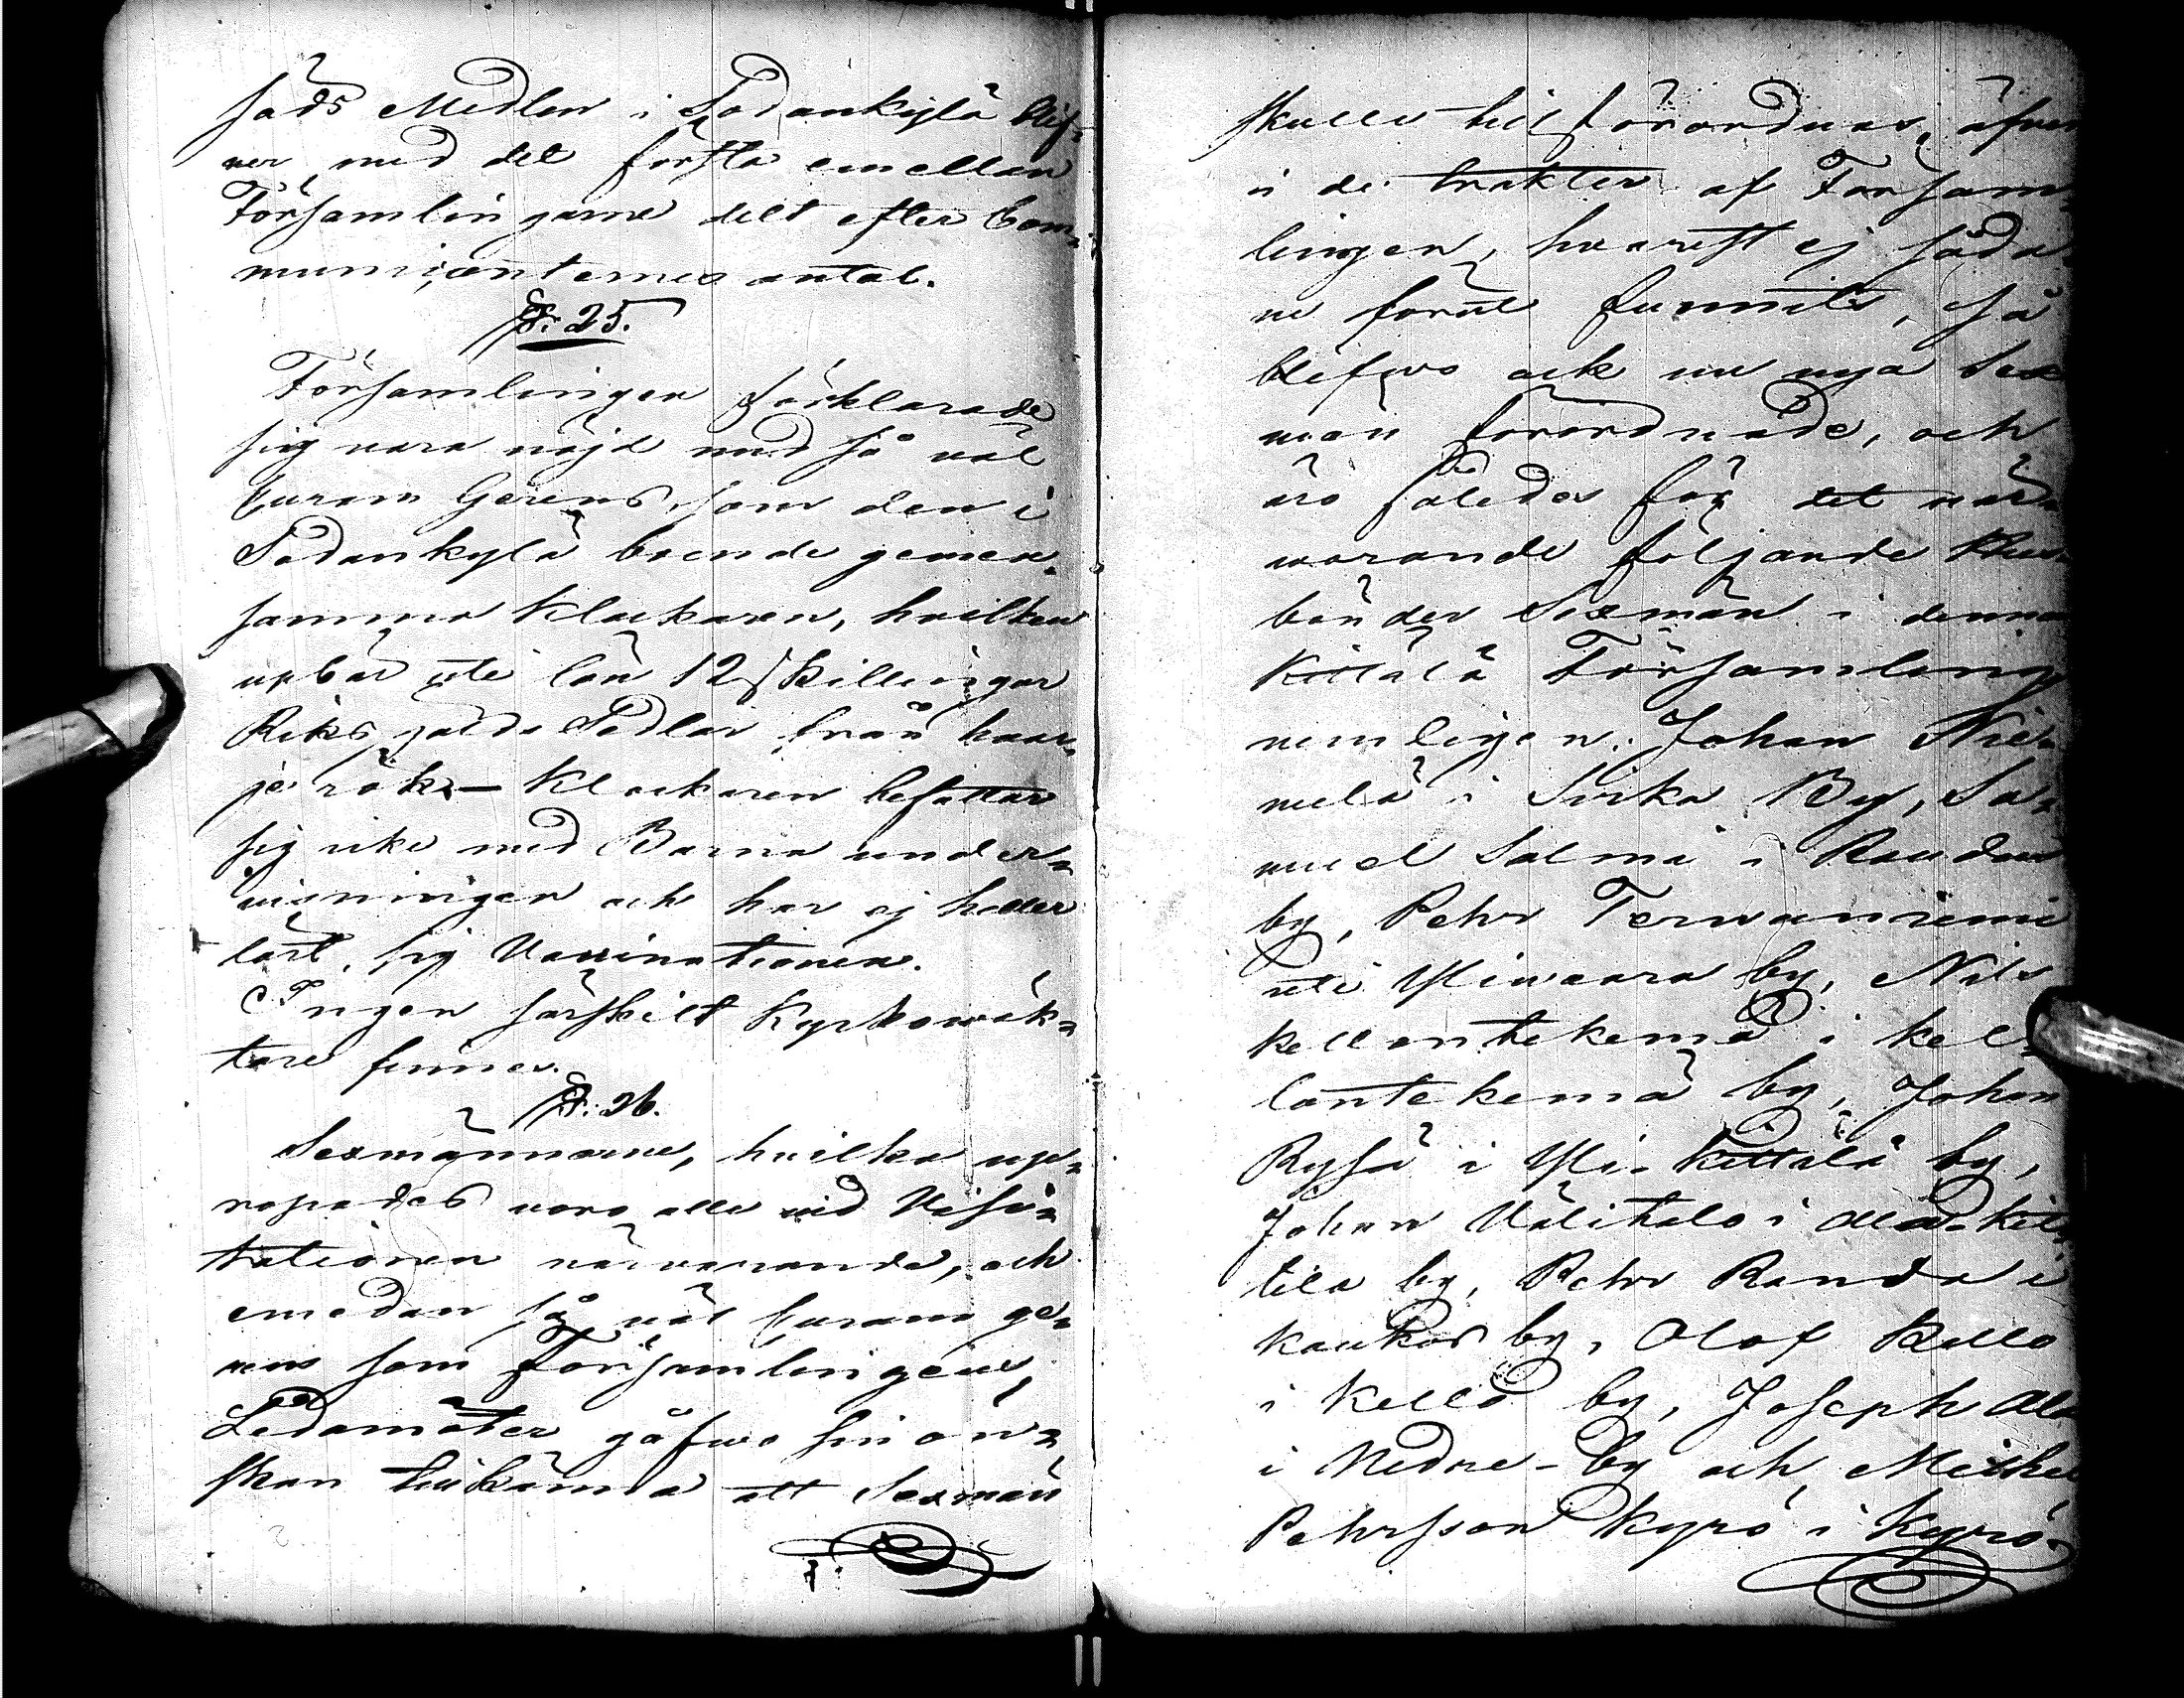 säds Medlen i Sodankylä blif-
ver, med det första emellan
Församlingarne delt efter Com-
municanternes antal.
§: 25.
Församlingen förklarade
sig vara nöjd med så väl
Curam Gerens, som den i
Sodankylä boende gemen-
samma Klockaren, hvilken
upbär uti lön 12 skillingar
Riksgälds Sedlar från hvar-
je rök. - Klockaren befattar
sig icke med Barna under-
visningen och har ej heller
lärt sig Vaccinationen.
Ingen särskilt Kyrkowäk-
tare finnes.
§: 26.
Sexmännerne, hvilka up-
ropades voro alle vid Visi-
tationen närvarande, och
emedan så väl Curam ge-
rens som Församlingens
Ledamöter gåfwo sin ön-
skan tillkänna att Sexmän
skulle till förordnas, äfven
i de trakter af Försam-
lingen, hvarest ej såda-
ne förut funnits, så
blefwo ock nu nya Sex
män förordnade, och
äro således för det när-
warande följande
bönder Sexmän i denna
Kittilä Församling
nemligen: Johan Nie-
melä i Sirka By, Sa-
muel Salmi i Raudus
by, Pehr Terwaniemi
uti Yliwaara by, Nils
Kellontekemä i Kel-
lontekemä by, Johan
Rysä i Yli-Kittilä by,
Johan Välitalo i Ala-Kit-
tilä by, Pehr Randa i
Kaukos by, Olof Kello
i Kello by, Joseph Ala
i Nedre-by och Michel
Pehrsson Kyrö i Kyrö-